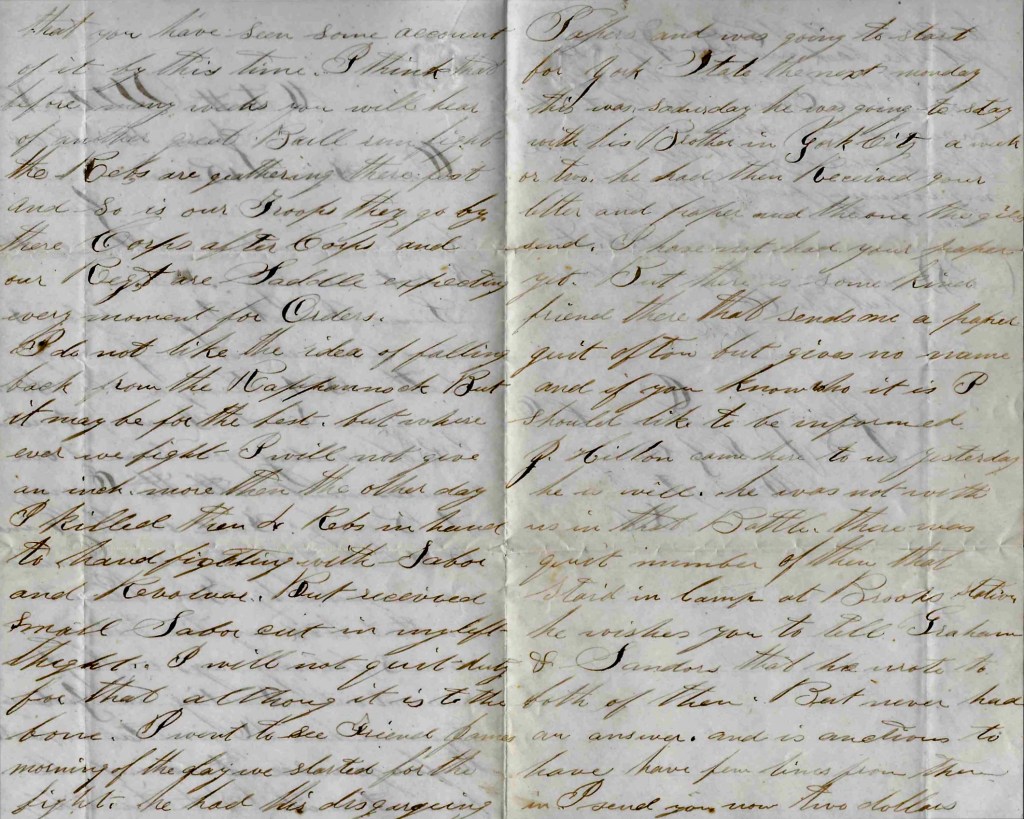 that you have seen some account
of it by this time. I think that
before many weeks you will hear
of another great Bull run fight
the Rebs are gathering there fast
and so is our Troops they go by
there Corps after Corps and
our Regt are Saddle expecting
every moment for Orders.
I do not like the idea of falling
back from the Rappannock But
it may be for the best. but where
ever we fight I will not give
an inch. more then the other day
I killed then Rebs in hand
to hand fighting with Sabor
and Revolvar. But received
small Sabor cut in my left
thight. I will not quit duty
for that althoug it is to the
bone. I went to see Friend James
morning of the day we started for the
fight. he had his
Papers and was going to start
for York State the next monday
this was he was going to stay
with his Brother in York City a week
or two. he had then Received your
letter and paper and the one the girls
send. I have not had your paper
yit. But there is some kind
friend there that sends me a paper
quit ofton but gives no name
and if you know who it is I
should like to be informed.
J. Hilton came here to us yesterday
he is will. he was not with
us in that Battle. there was
quit number of then that
staid in Camp at Brooks Station
he wishes you to tell Graham
& Sandors that he wrote to
both of them. But never had
an answer. and is anctious to
have have few lines from them
in I send you now two dollars